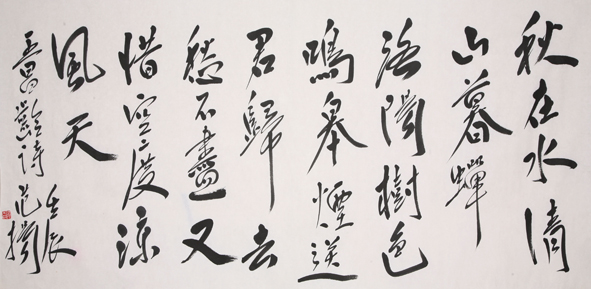 秋在水清
山暮蟬
洛陽樹色
鳴皋煙送
君歸去
愁不盡又
惜空度涼
風天
王昌齡詩
壬辰
范揚